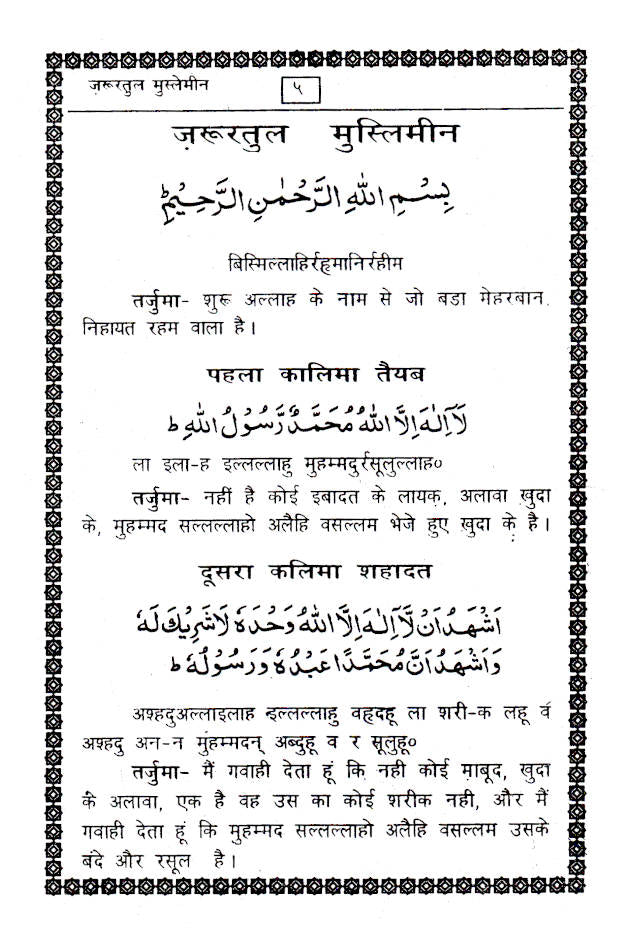 ज़रूरतुल मुस्लेमीन
५
ज़रूरतुल मुस्लिमीन
بِسْمِ اللهِ الرَّحْمٰنِ الرَّحِيْمِ ط
बिस्मिल्लाहिर्रहमानिर्रहीम
तर्जुमा- शुरू अल्लाह के नाम से जो बडा मेहरबान.
निहायत रहम वाला है।
पहला कालिमा तैयब
لَآ اِلٰهَ اِلَّا اللهُ مُحَمَّدٌ رَّسُوْلُ اللهِ ط
ला इला-ह इल्लल्लाहु मुहम्मदुर्रसूलुल्लाह०
तर्जुमा- नहीं है कोई इबादत के लायक़, अलावा ख़ुदा
के, मुहम्मद सल्लल्लाहो अलैहि वसल्लम भेजे हुए ख़ुदा के़ है।
दूसरा कलिमा शहादत
اَشْهَدُ اَنْ لَّآ اِلٰهَ اِلَّا اللهُ وَحْدَهٗ لَا شَرِيْكَ لَهٗ
وَاَشْهَدُ اَنَّ مُحَمَّدًا عَبْدُهٗ وَرَسُوْلُهٗ ط
अश्हदुअल्लाइलाह इल्लल्लाहु वह़दहू ला शरी-क लहू व
अश्हदु अन-न मुंहम्मदन् अब्दुहू व र सूलुहू०
तर्जुमा- मैं गवाही देता हूं कि नही कोई मा़बूद, खुदा
के अलावा, एक है वह उस का कोई शरीक नही, और मैं
गवाही देता हूं कि मुहम्मद सल्लल्लाहो अलैहि वसल्लम उसके
बंदे और रसूल है।